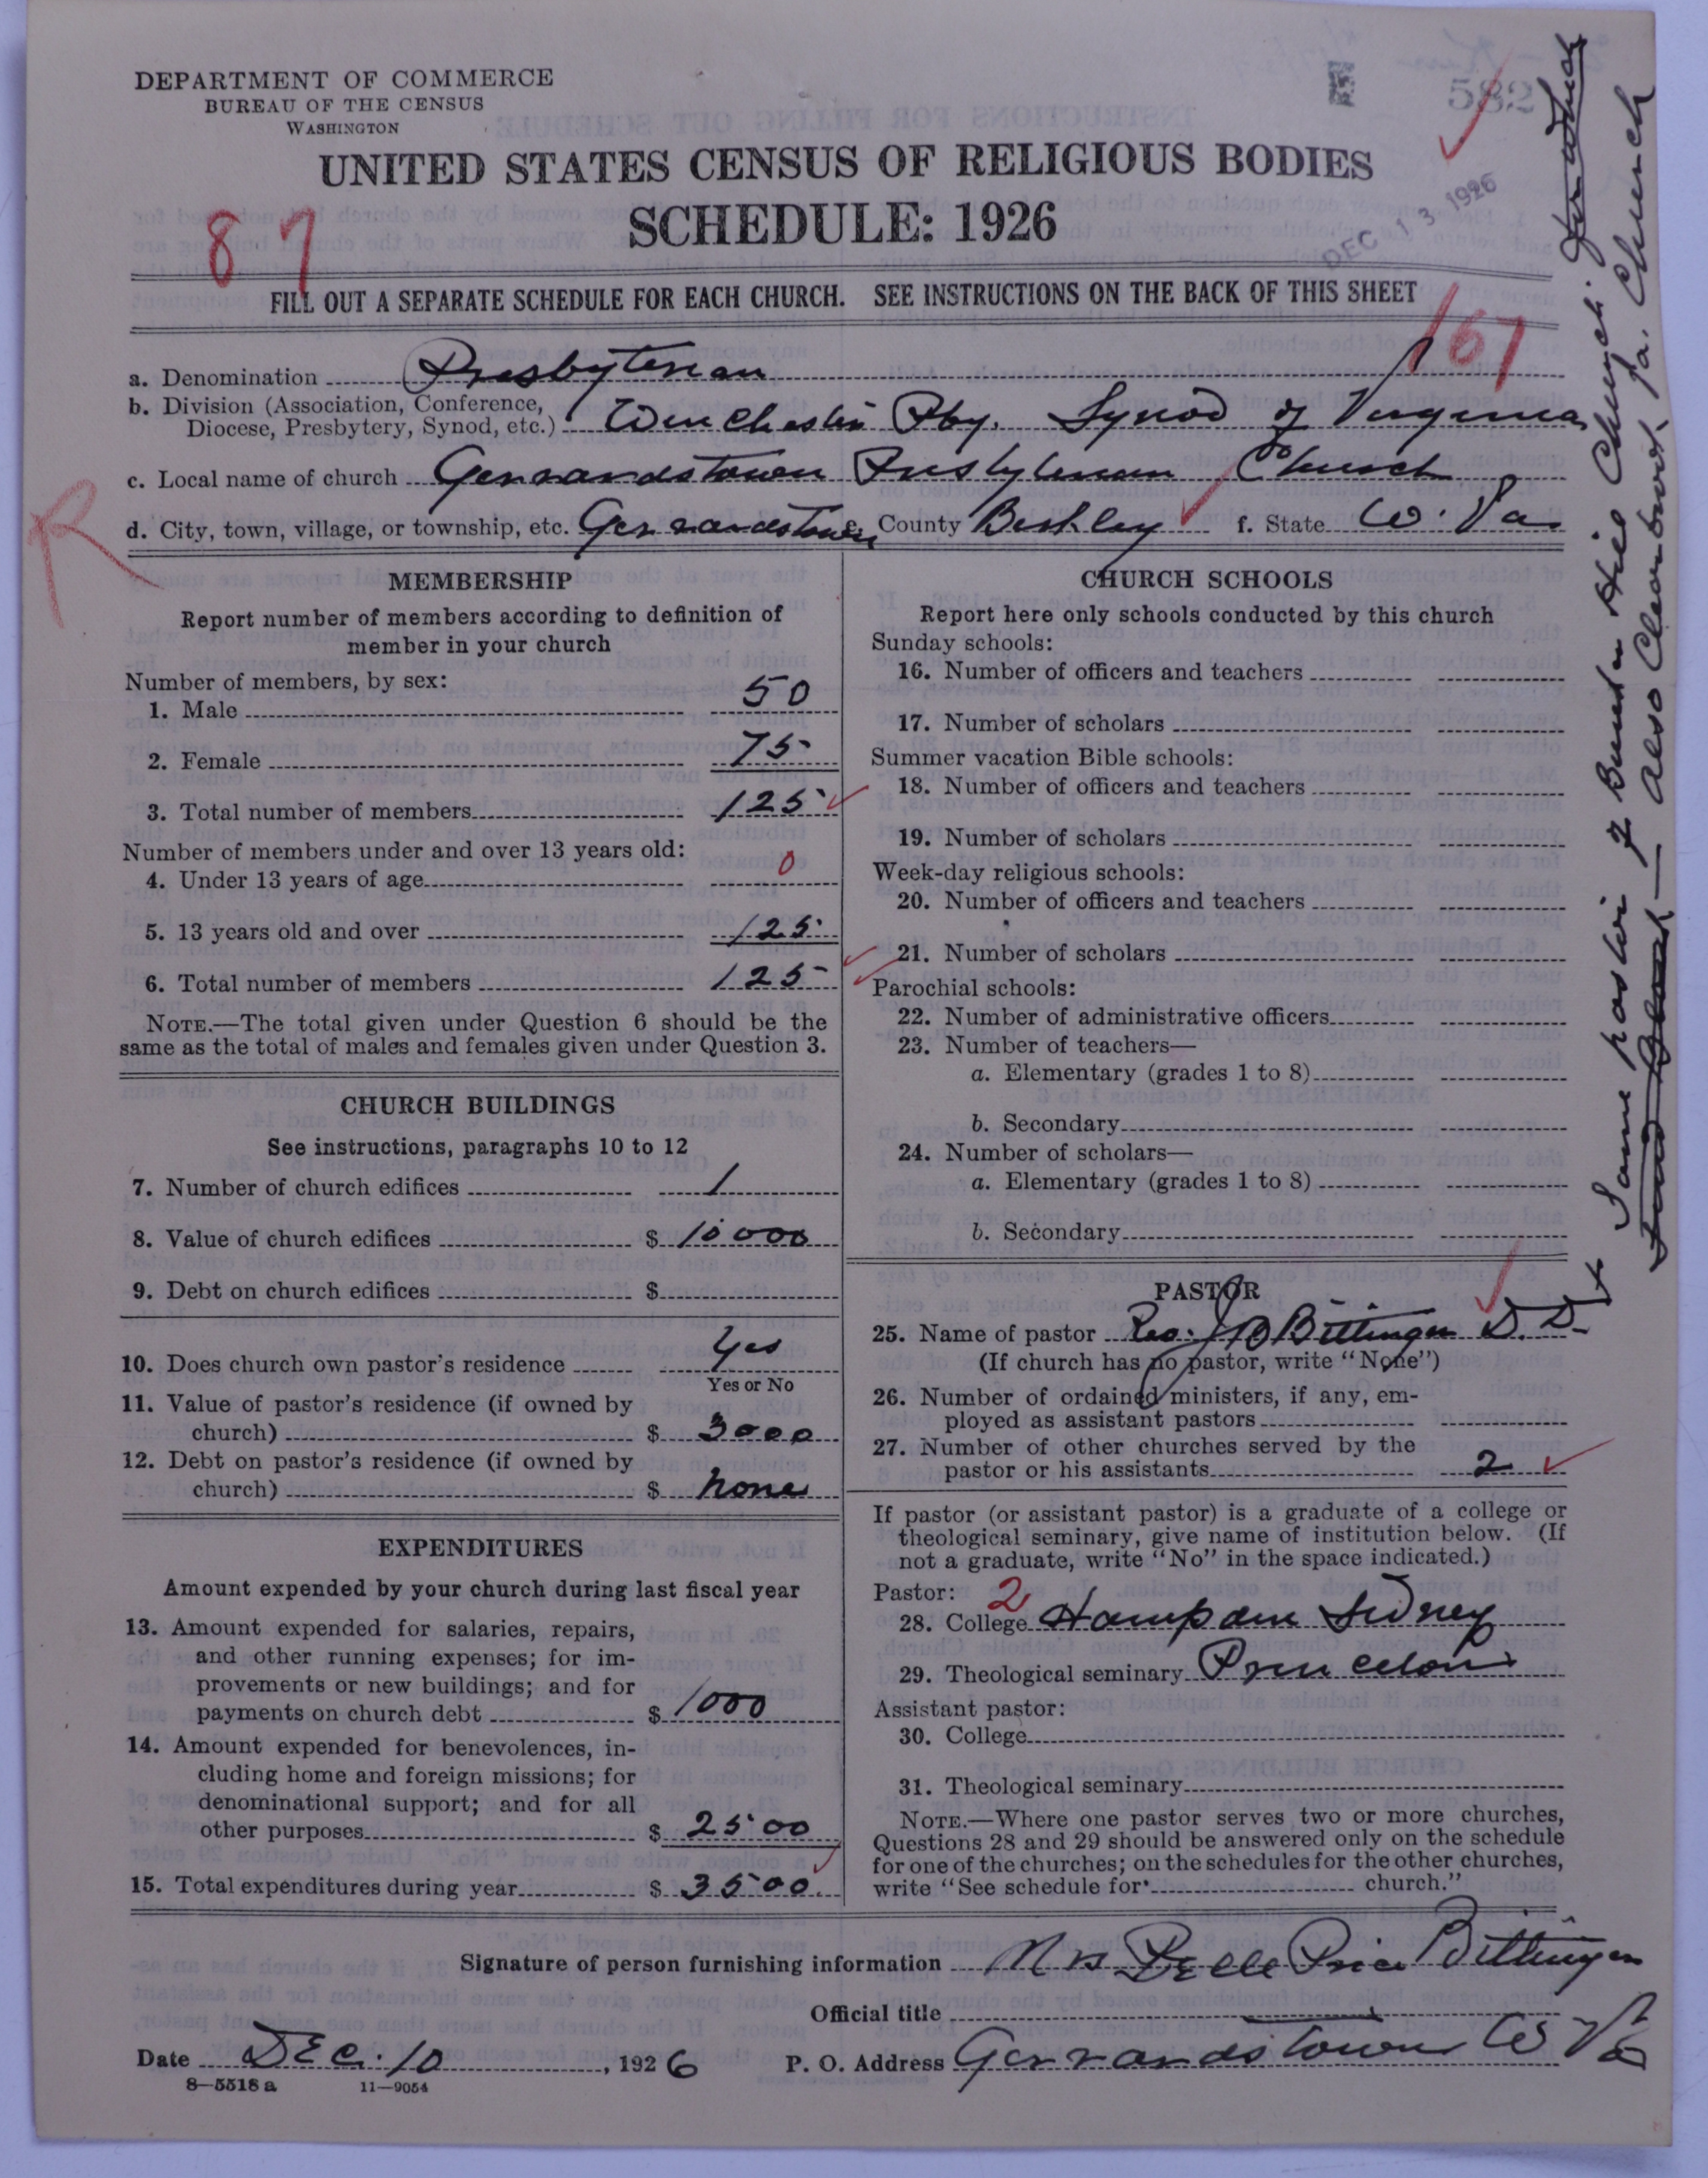 DEPARTMENT OF COMMERCE
BUREAU OF THE CENSUS
WASHINGTON
582
UNITED STATES CENSUS OF RELIGIOUS BODIES
SCHEDULE: 1926
87
DEC 13 1926
FILL OUT A SEPARATE SCHEDULE FOR EACH CHURCH. SEE INSTRUCTIONS ON THE BACK OF THIS SHEET
167
a. Denomination Presbyterian
b. Division (Association, Conference,
Diocese, Presbytery, Synod, etc.) Winchester Pby. Synod of Virginia
c. Local name of church Gerrardstown Presbyterian Church
d. City, town, village, or township, etc. Gerrardstown e. County Berkley f. State W. Va.
R
MEMBERSHIP
Report number of members according to definition of
member in your church
Number of members, by sex:
1. Male 50
2. Female 75
3. Total number of members 125
Number of members under and over 13 years old:
4. Under 13 years of age 0
5. 13 years old and over 125
6. Total number of members 125
NOTE.—The total given under Question 6 should be the
same as the total of males and females given under Question 3.
CHURCH BUILDINGS
See instructions, paragraphs 10 to 12
7. Number of church edifices 1
8. Value of church edifices $ 10000
9. Debt on church edifices $
10. Does church own pastor's residence Yes
Yes or No
11. Value of pastor's residence (if owned by
church) $ 3000
12. Debt on pastor's residence (if owned by
church) $ none
EXPENDITURES
Amount expended by your church during last fiscal year
13. Amount expended for salaries, repairs,
and other running expenses; for im-
provements or new buildings; and for
payments on church debt $ 1000
14. Amount expended for benevolences, in-
cluding home and foreign missions; for
denominational support; and for all
other purposes $ 2500
15. Total expenditures during year $ 3500.
CHURCH SCHOOLS
Report here only schools conducted by this church
Sunday schools:
16. Number of officers and teachers
17. Number of scholars
Summer vacation Bible schools:
18. Number of officers and teachers
19. Number of scholars
Week-day religious schools:
20. Number of officers and teachers
21. Number of scholars
Parochial schools:
22. Number of administrative officers
23. Number of teachers—
a. Elementary (grades 1 to 8)
b. Secondary
24. Number of scholars—
a. Elementary (grades 1 to 8)
b. Secondary
PASTOR
25. Name of pastor Rev. J B Bittinger D. D.
(If church has no pastor, write "None")
26. Number of ordained ministers, if any, em-
ployed as assistant pastors
27. Number of other churches served by the
pastor or his assistants 2
If pastor (or assistant pastor) is a graduate of a college or
theological seminary, give name of institution below. (If
not a graduate, write "No" in the space indicated.)
Pastor: 2
28. College Hampden Sidney
29. Theological seminary Princeton
Assistant pastor:
30. College
31. Theological seminary
NOTE.—Where one pastor serves two or more churches,
Questions 28 and 29 should be answered only on the schedule
for one of the churches; on the schedules for the other churches,
write "See schedule for church."
Signature of person furnishing information Mrs Belle Price Bittinger
Official title
Date Dec. 10, 1926 P. O. Address Gerrardstown W Va
8—5518 a 11—9054
Same pastor of Bunker Hill Church
also Clearbrook, Va. Church